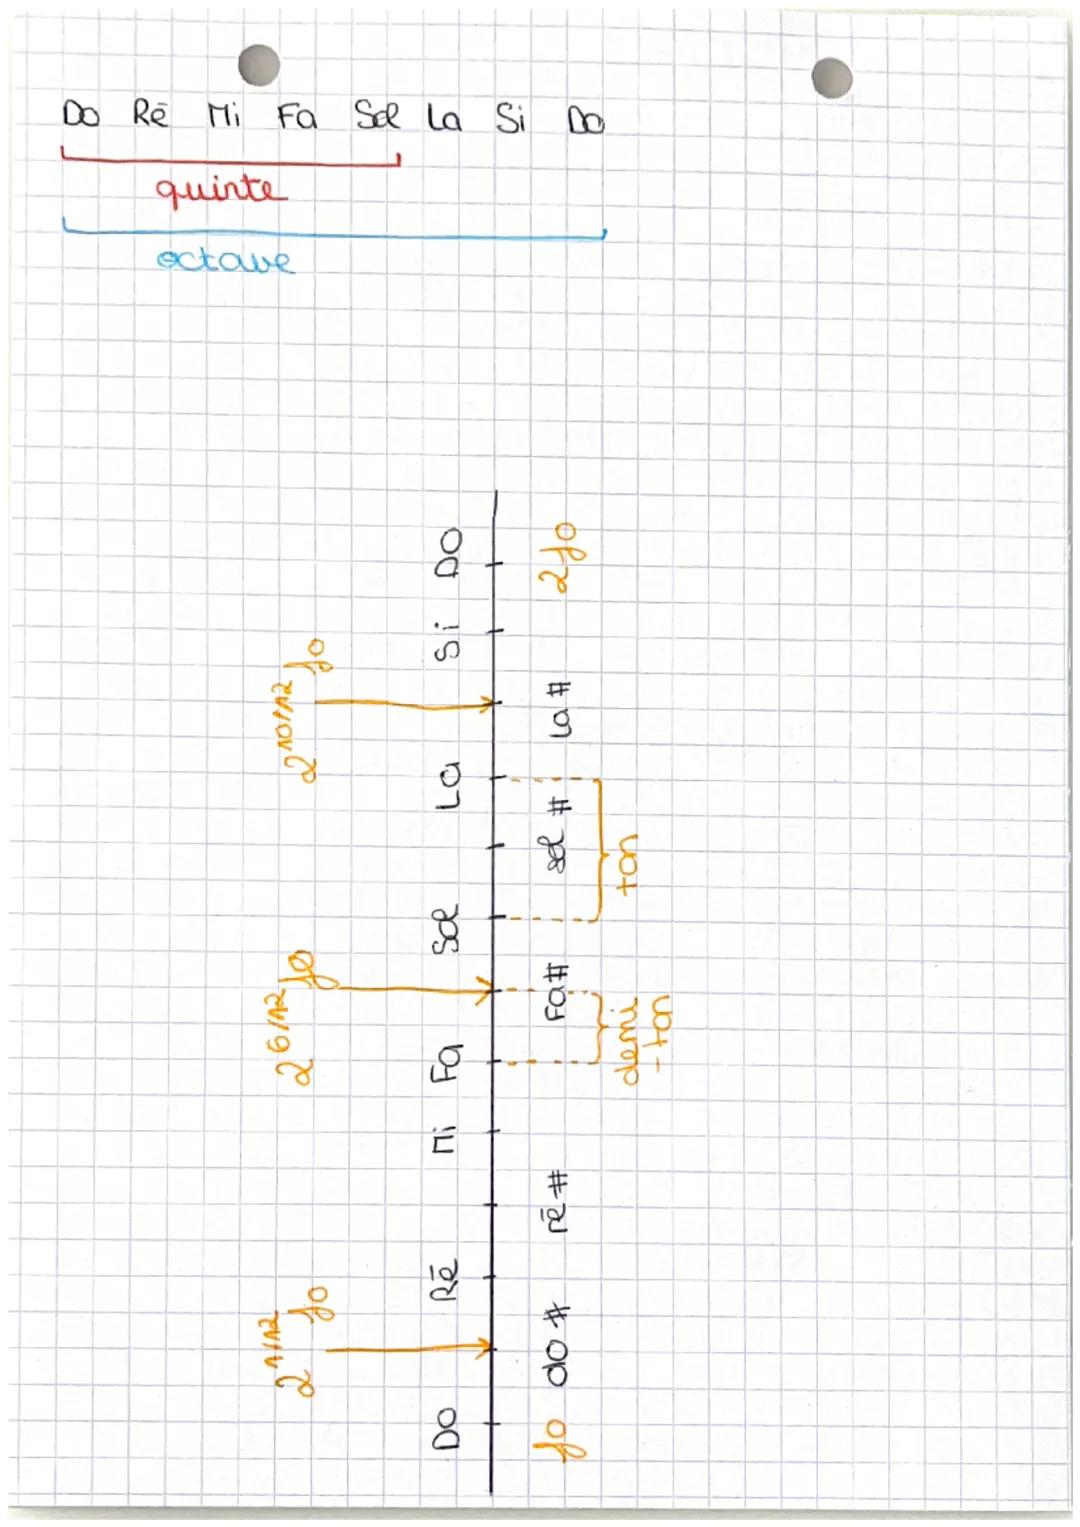 Do Ré Mi Fa Sol La Si Do
quinte
octave
2^1/12 fo 2^6/12 fo 2^10/12 fo
Do Ré Mi Fa Sol La Si Do
fo do# ré# Fa# sol# La# 2fo
demi-ton ton